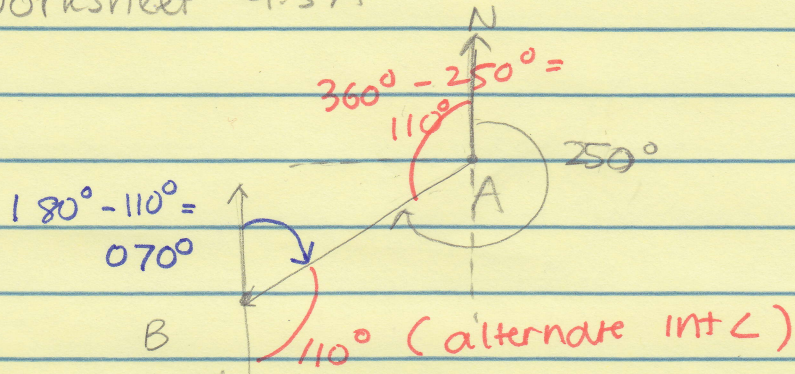 Worksheet
N
360° - 250° =
110°
250°
A
180° - 110° =
070°
B
110° (alternate int <)